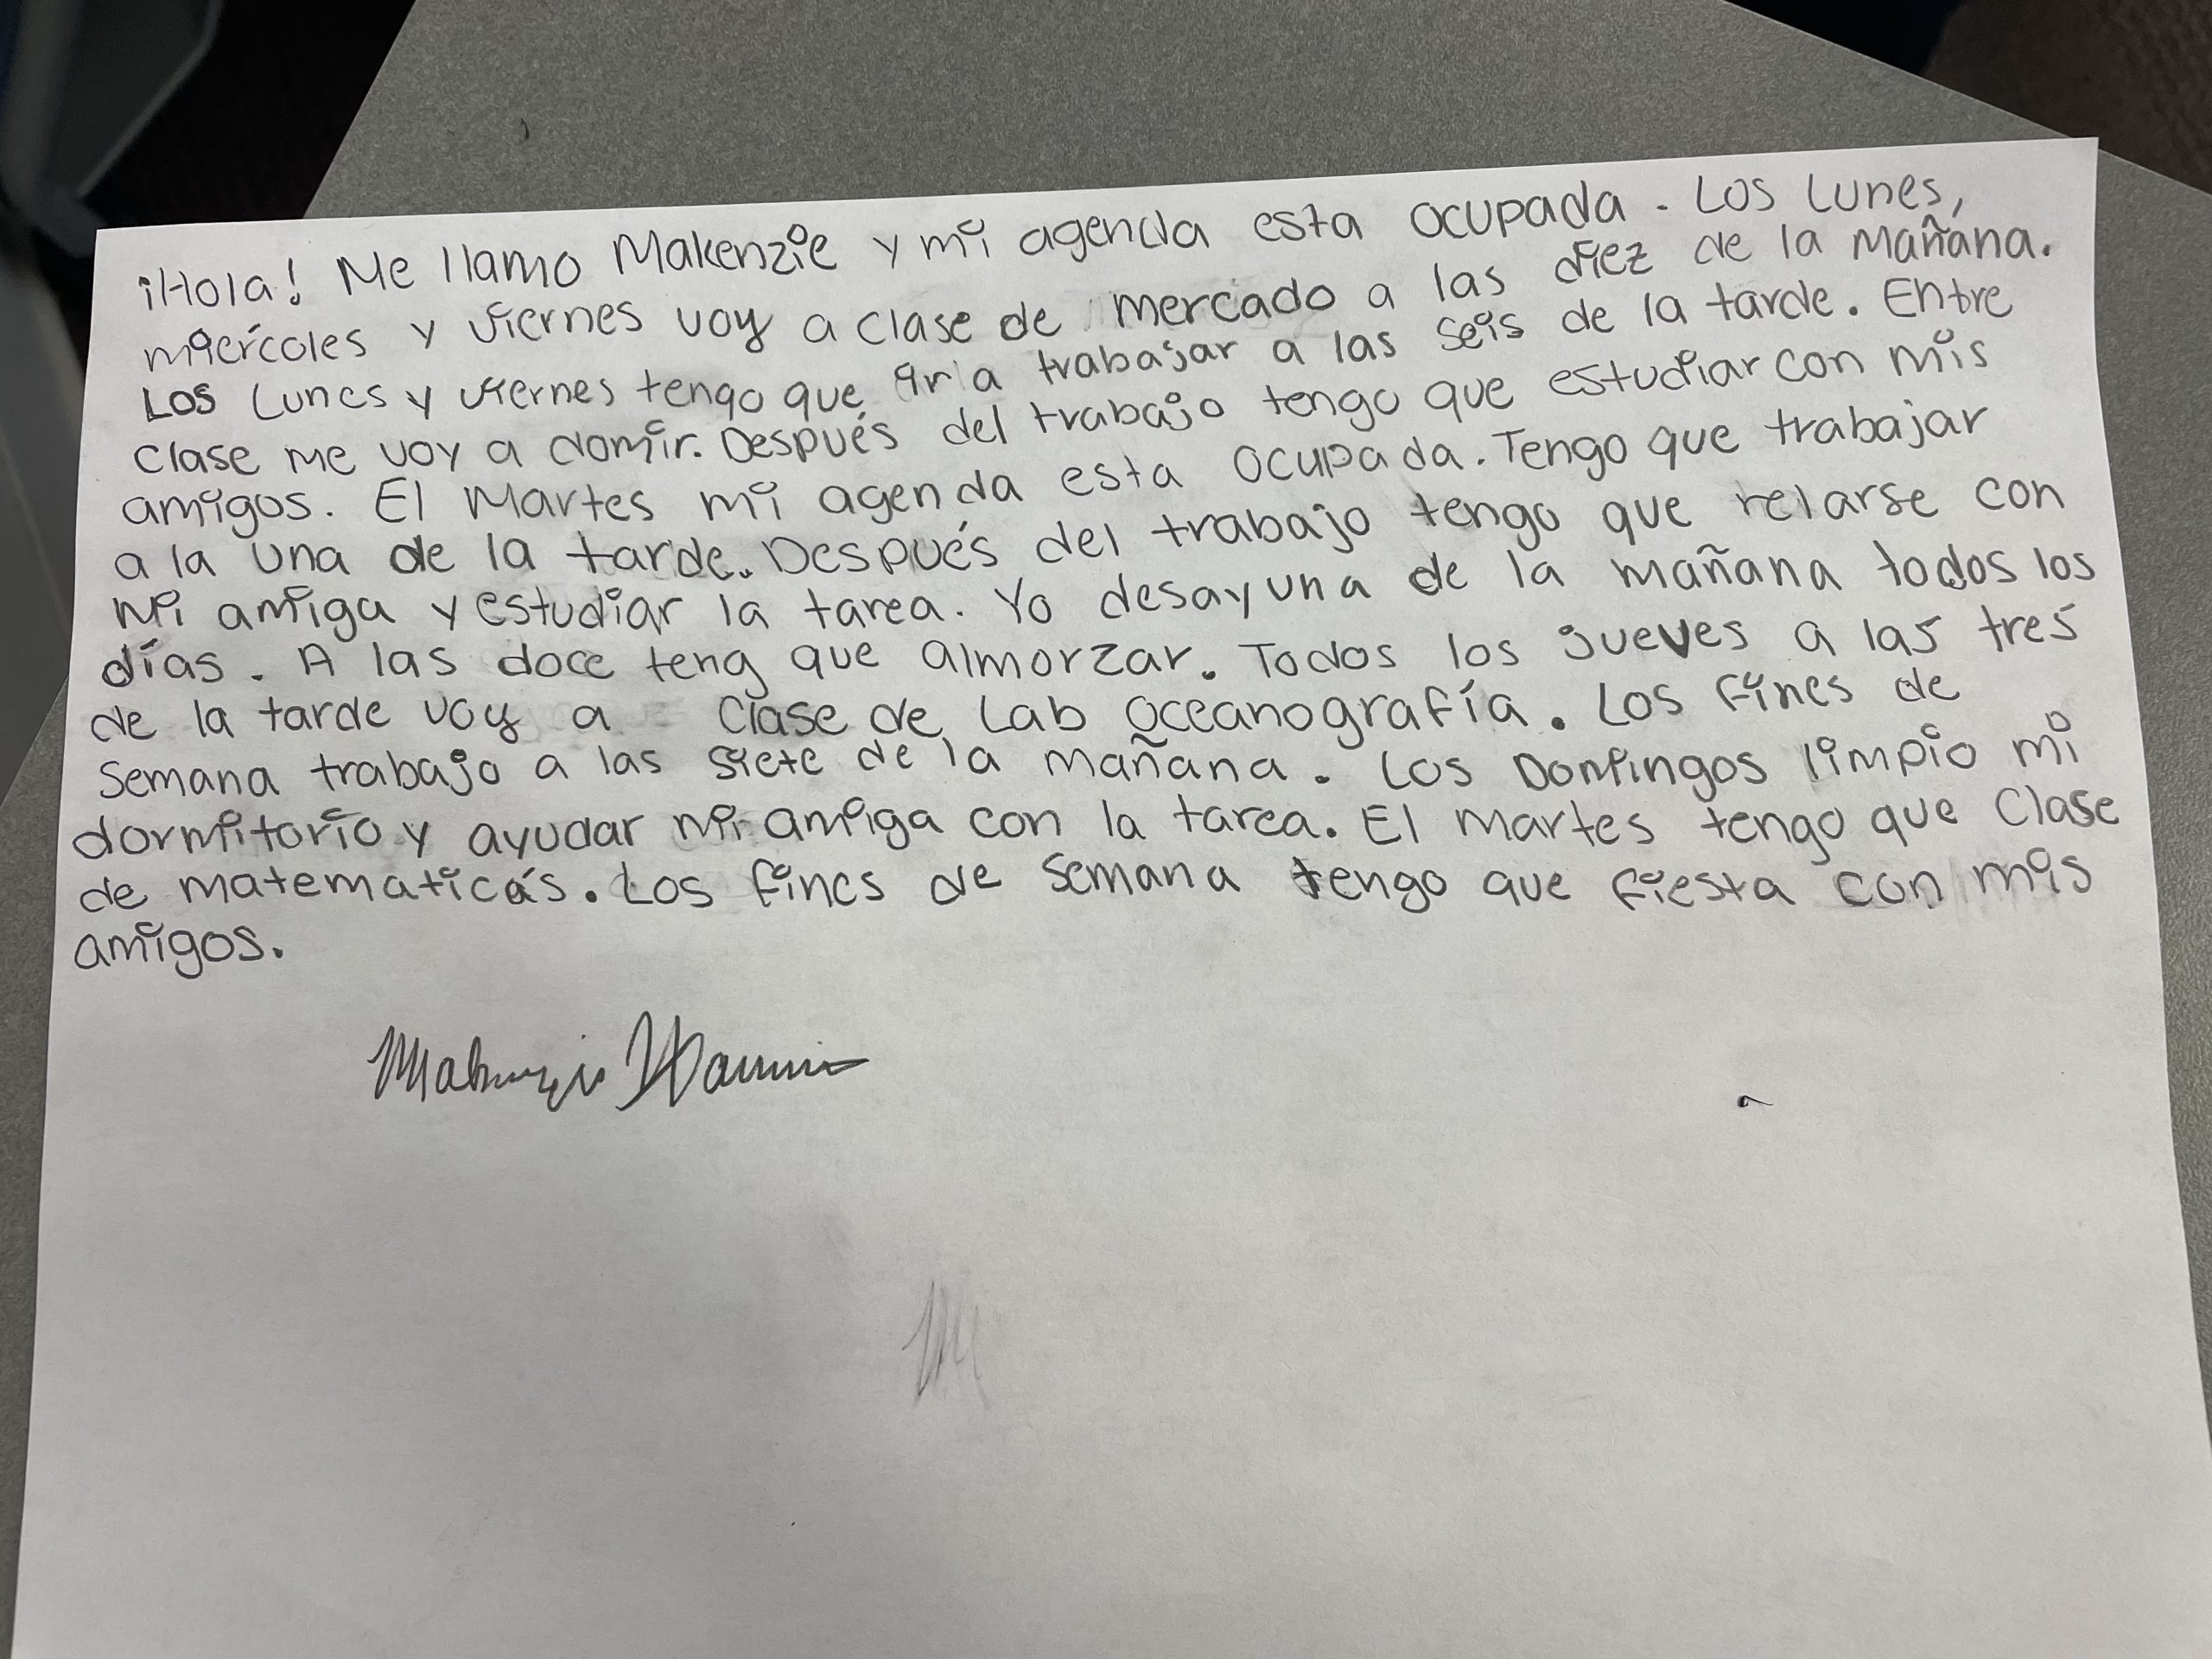 ¡Hola! Me llamo Makenzie y mi agenda esta ocupada. Los Lunes,
miércoles y viernes voy a clase de mercado a las diez de la mañana.
Los Lunes y viernes tengo que ir a trabajar a las seis de la tarde. Entre
clase me voy a domir. Después del trabajo tengo que estudiar con mis
amigos. El Martes mi agenda esta ocupada. Tengo que trabajar
a la una de la tarde. Después del trabajo tengo que relarse con
mi amiga y estudiar la tarea. Yo desayuna de la mañana todos los
días. A las doce teng que almorzar. Todos los jueves a las tres
de la tarde voy a clase de Lab oceanografía. Los fines de
semana trabajo a las siete de la mañana. Los Domingos limpio mi
dormitorio y ayudar mi amiga con la tarea. El martes tengo que Clase
de matematicás. Los fines de semana tengo que fiesta con mis
amigos.
Makenzie